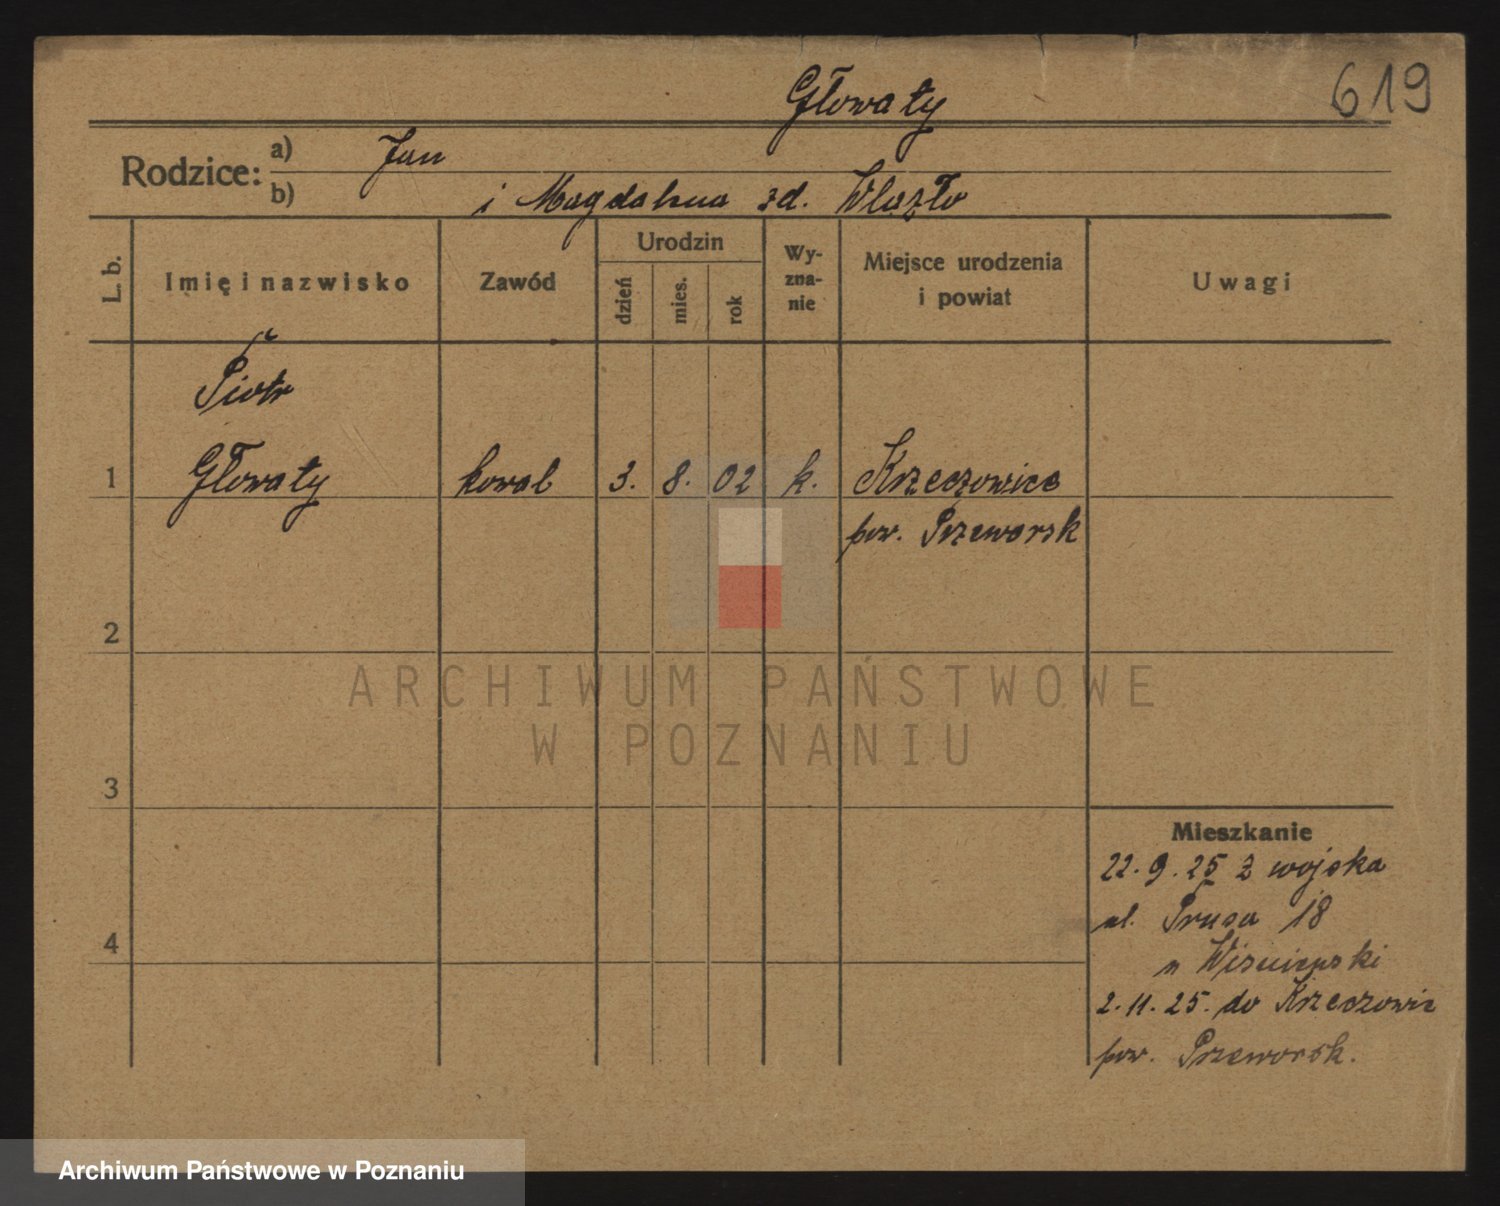 Głowaty
619
Rodzice:
a) Jan
b) i Magdalena zd. Wlazło
L. b.
Imię i nazwisko
Zawód
Urodzin
dzień
mies.
rok
Wy-
zna-
nie
Miejsce urodzenia
i powiat
Uwagi
Piotr
1 Głowaty kowal 3. 8. 02 k. Krzeczowice
pow. Przeworsk
2
3
4
Mieszkanie
22.9.25 z wojska
ul. Prusa 18
Wiśniewski
2.11.25. do Krzeczowic
pow. Przeworsk.
ARCHIWUM PAŃSTWOWE
W POZNANIU
Archiwum Państwowe w Poznaniu